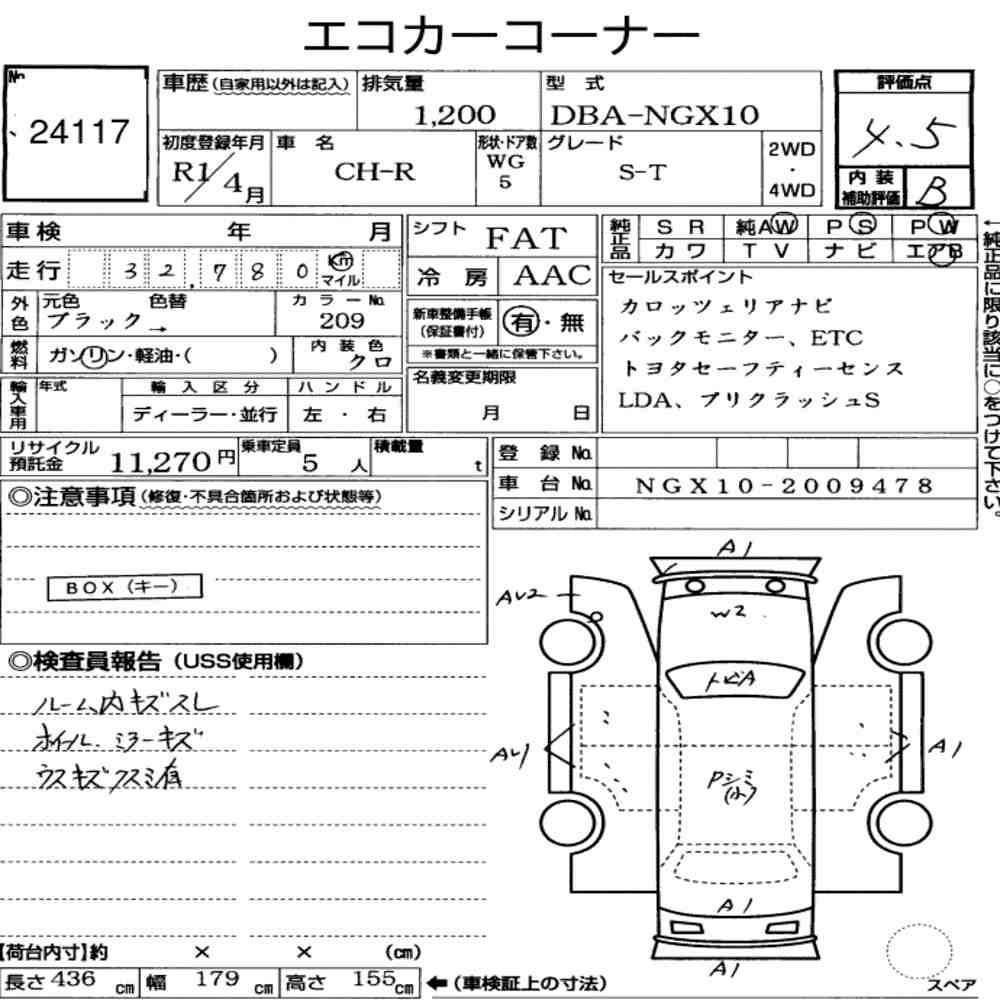 エコカーコーナー
No. 24117
車歴(自家用以外は記入) 排気量 1,200 型式 DBA-NGX10
初度登録年月 R1/4月 車名 CH-R 形状・ドア数 WG 5 グレード S-T 2WD・4WD
評価点 4.5
内装補助評価 B
車検 年 月
走行 32,780 km マイル
外色 元色 ブラック → 色替 カラーNo. 209
燃料 ガソリン・軽油・( ) 内装色 クロ
輸入車用 年式 輸入区分 ディーラー・並行 ハンドル 左・右
シフト FAT
冷房 AAC
新車整備手帳(保証書付) 有・無
※書類と一緒に保管下さい。
名義変更期限 月 日
純正品 SR 純AW PS PW
カワ TV ナビ エアB
セールスポイント
カロッツェリアナビ
バックモニター、ETC
トヨタセーフティーセンス
LDA、プリクラッシュS
←純正品に限り該当に○をつけて下さい。
リサイクル預託金 11,270円 乗車定員 5人 積載量 t
登録No.
車台No. NGX10-2009478
シリアルNo.
◎注意事項(修復・不具合箇所および状態等)
BOX(キー)
◎検査員報告(USS使用欄)
ルーム内キズスレ
ホイール.ミラーキズ
ウスキズクスミ有
A1
AU2
W2
トビA
AU1
A1
Pシミ
(小)
A1
A1
スペア
【荷台内寸】約 × × (cm)
長さ 436 cm 幅 179 cm 高さ 155 cm ←(車検証上の寸法)